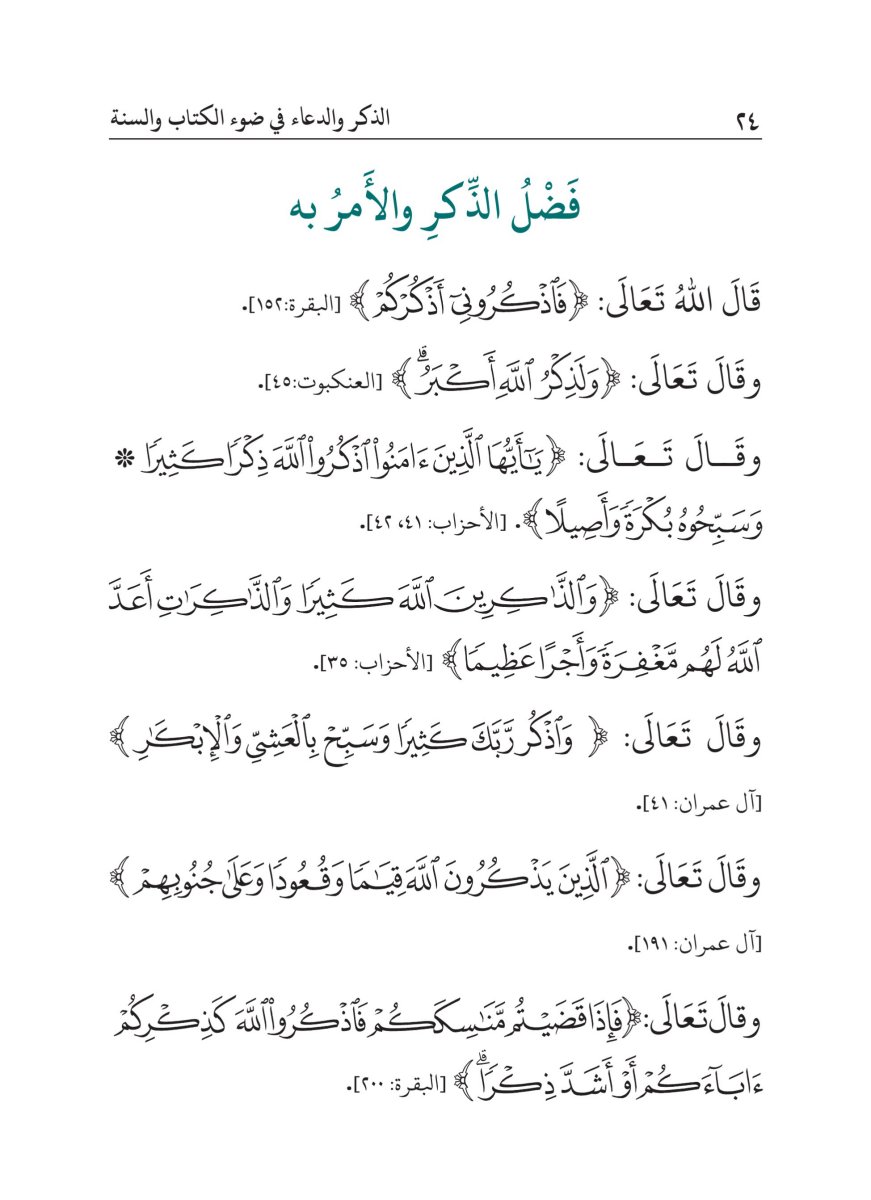 ٢٤ الذكر والدعاء في ضوء الكتاب والسنة
فَضْلُ الذِّكرِ والأَمرُ به
قَالَ اللهُ تَعَالَى: ﴿فَٱذۡكُرُونِيٓ أَذۡكُرۡكُمۡ﴾ [البقرة:١٥٢].
وقَالَ تَعَالَى: ﴿وَلَذِكۡرُ ٱللَّهِ أَكۡبَرُۗ﴾ [العنكبوت:٤٥].
وقَـــالَ تَــعَــالَى: ﴿يَٰٓأَيُّهَا ٱلَّذِينَ ءَامَنُواْ ٱذۡكُرُواْ ٱللَّهَ ذِكۡرٗا كَثِيرٗا *
وَسَبِّحُوهُ بُكۡرَةٗ وَأَصِيلًا﴾. [الأحزاب: ٤١، ٤٢].
وقَالَ تَعَالَى: ﴿وَٱلذَّٰكِرِينَ ٱللَّهَ كَثِيرٗا وَٱلذَّٰكِرَٰتِ أَعَدَّ
ٱللَّهُ لَهُم مَّغۡفِرَةٗ وَأَجۡرًا عَظِيمٗا﴾ [الأحزاب: ٣٥].
وقَالَ تَعَالَى: ﴿ وَٱذۡكُر رَّبَّكَ كَثِيرٗا وَسَبِّحۡ بِٱلۡعَشِيِّ وَٱلۡإِبۡكَٰرِ ﴾
[آل عمران: ٤١].
وقَالَ تَعَالَى: ﴿ٱلَّذِينَ يَذۡكُرُونَ ٱللَّهَ قِيَٰمٗا وَقُعُودٗا وَعَلَىٰ جُنُوبِهِمۡ﴾
[آل عمران: ١٩١].
وقالَ تَعَالَى:﴿فَإِذَا قَضَيۡتُم مَّنَٰسِكَكُمۡ فَٱذۡكُرُواْ ٱللَّهَ كَذِكۡرِكُمۡ
ءَابَآءَكُمۡ أَوۡ أَشَدَّ ذِكۡرٗاۗ﴾ [البقرة: ٢٠٠].